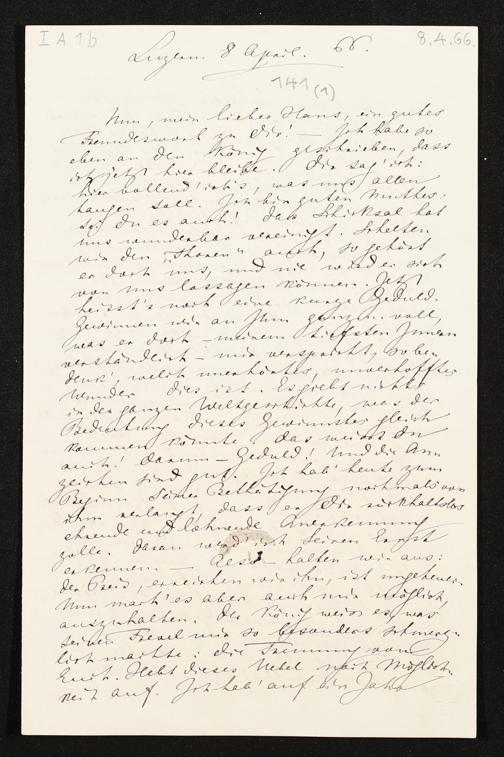 I A 1b
8.4.66.
Luzern. 8 April. 66.
141 (1)
Nun, mein lieber Hans, ein gutes
Freundeswort zu Dir! — Ich habe so
eben an den König geschrieben, dass
ich jetzt hier bleibe. Dir sag' ich:
hier vollend' ich's, was uns allen
taugen soll. Ich bin guten Muthes:
sei Du es auch! Das Schicksal hat
uns wunderbar vereinigt. Schelten
wir den „Thoren" auch, so gehört
er doch uns, und nie wird er sich
von uns lossagen können. Jetzt
heisst's noch eine kurze Geduld.
Gewinnen wir an Ihm ganz voll,
was er doch – meinem tiefsten Innern
verständlich – mir verspricht, so be-
denk', welch unerhörtes, unverhofftes
Wunder dies ist. Es giebt nichts
in der ganzen Weltgeschichte, was der
Bedeutung dieses Gewinnstes gleich
kommen könnte. Das weisst Du
auch! Darum – Geduld! Und die An-
zeichen sind gut. Ich hab' heute zum
Beginn Seiner Bethätigung nochmals von
ihm verlangt, dass er Dir rückhaltslos
ehrende und lohnende Anerkennung
zolle. Daran werd' ich Seinen Ernst
erkennen. — Also – halten wir aus:
der Preis, erreichen wir ihn, ist ungeheuer.
Nun mach' es aber auch mir möglich,
auszuhalten. Der König weiss es, was
seinen Frevel mir so besonders schmerz-
lich machte: die Trennung von
Euch. Hebt dieses Uebel nach Möglich-
keit auf. Ich hab' auf ein Jahr